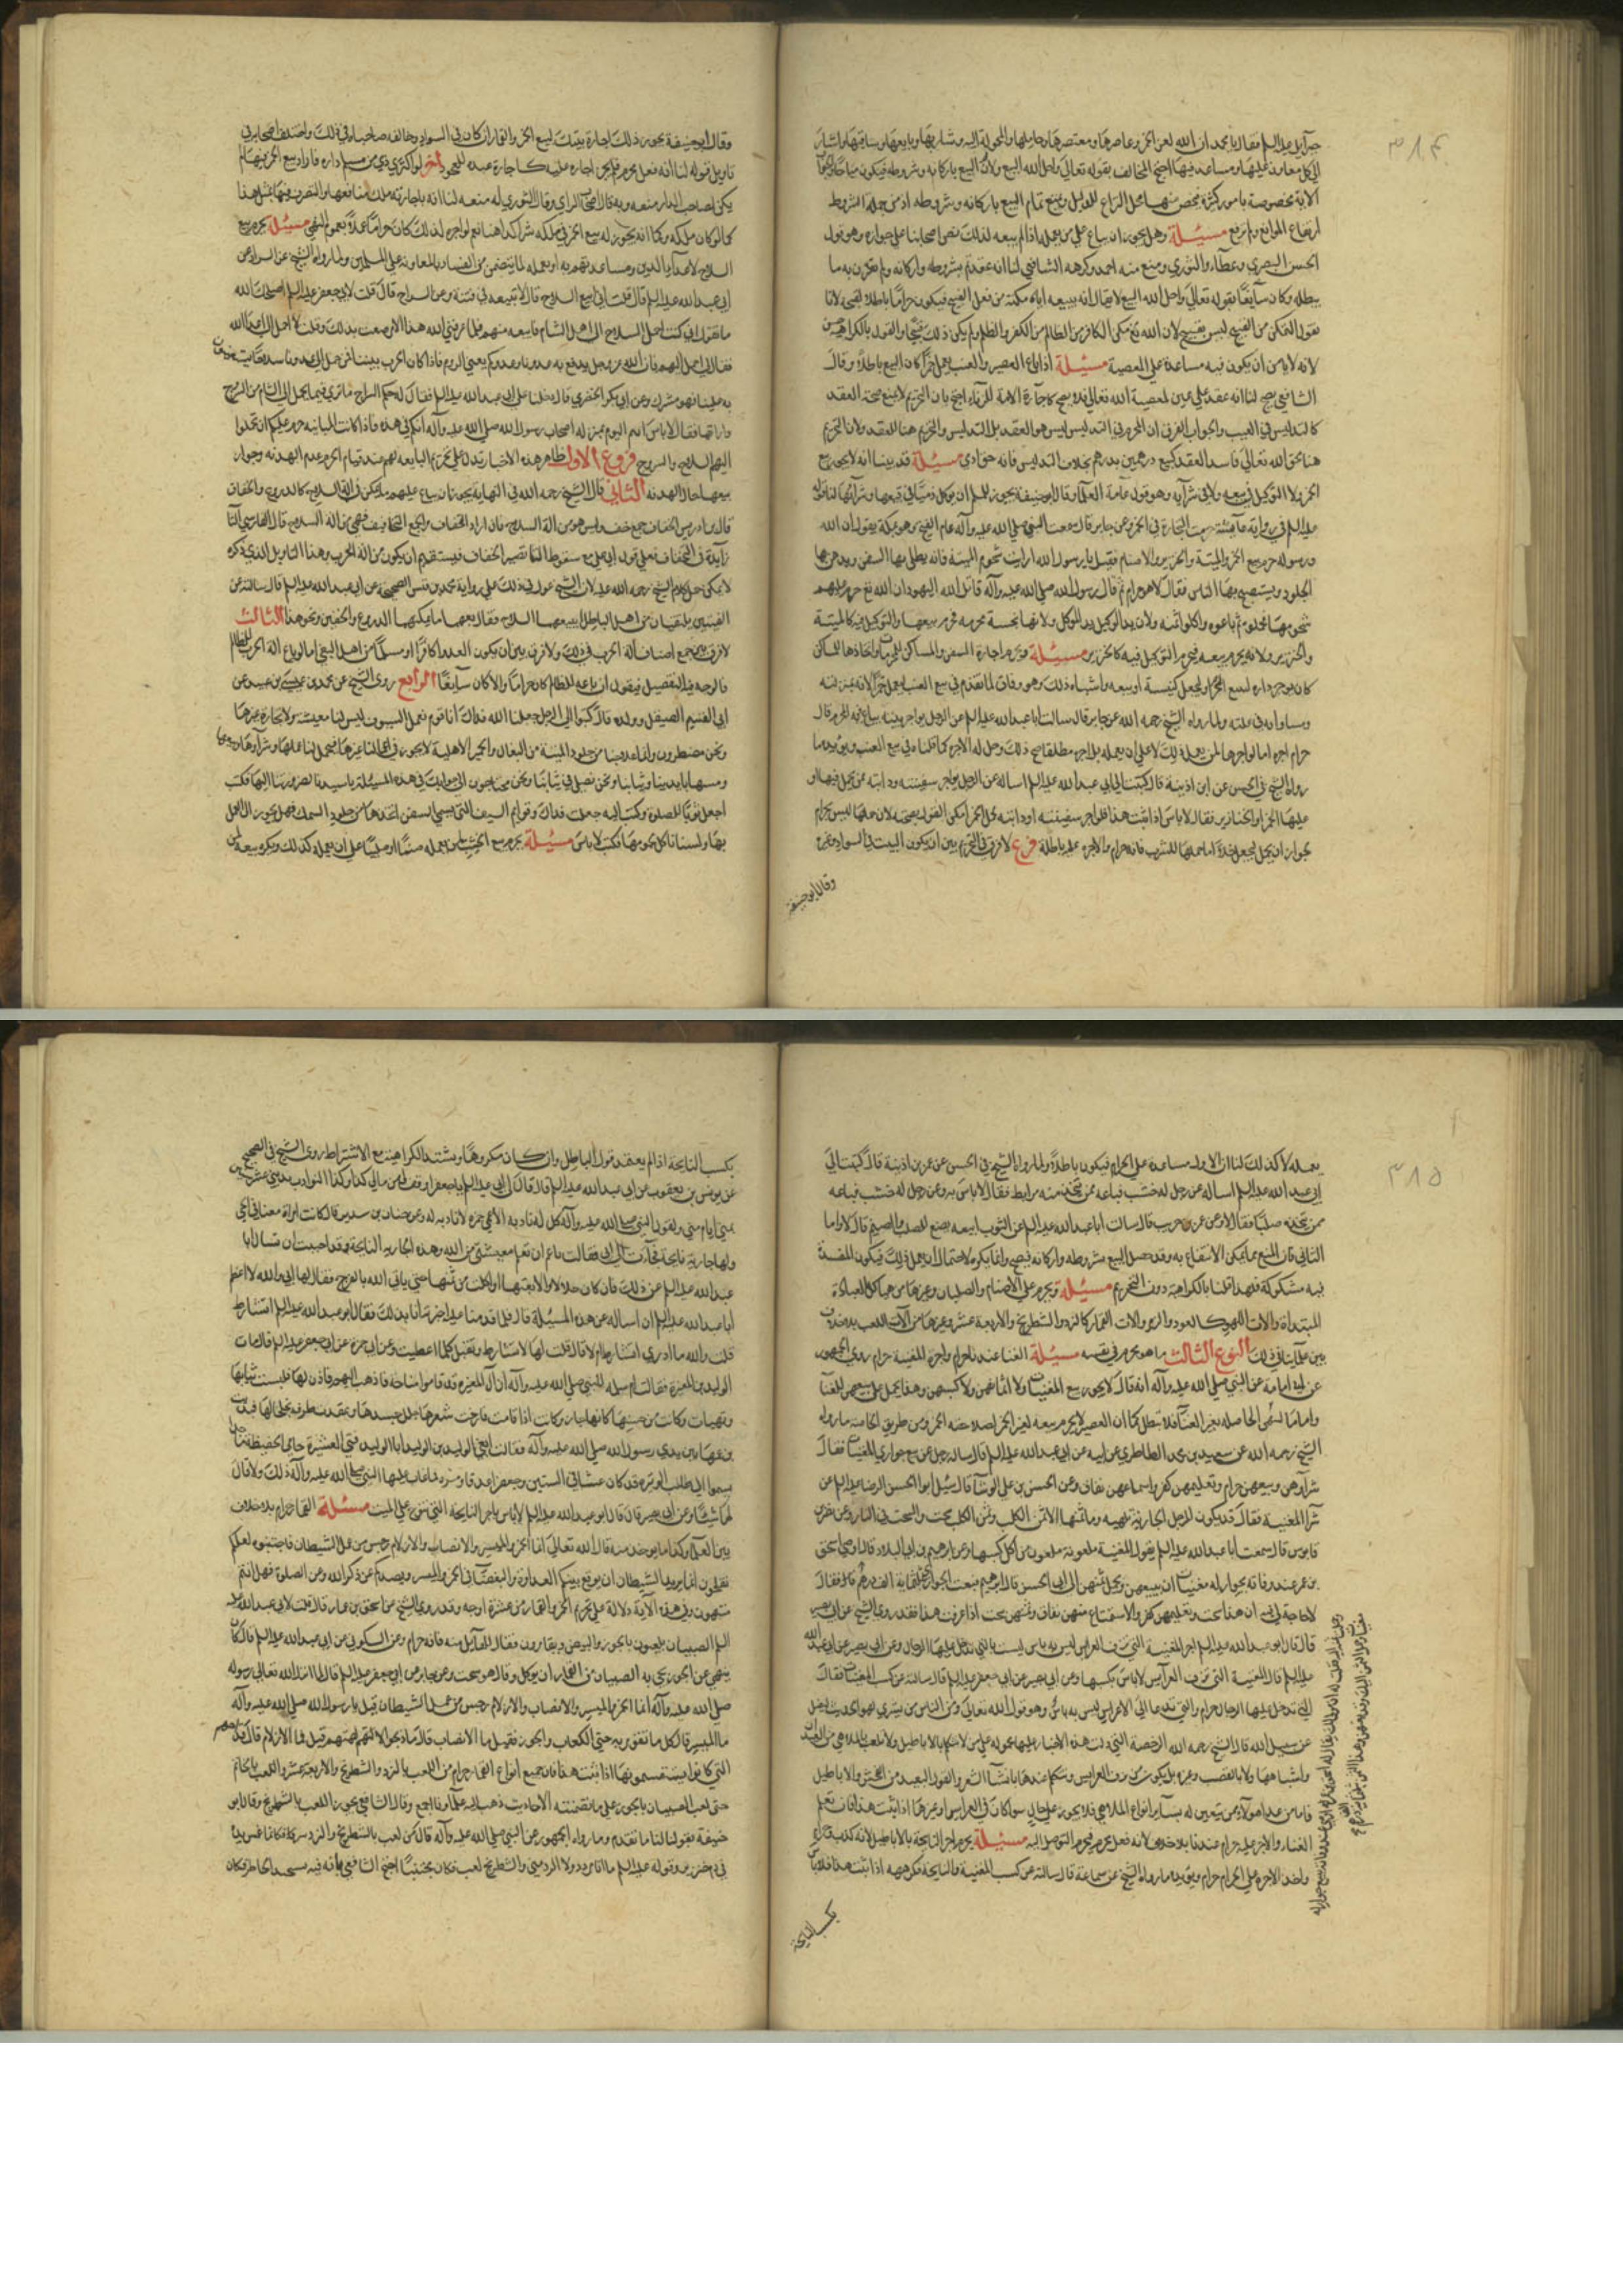 ٣١٤
جبرآئيل عليه السلم فقال يا محمد ان الله لعن الخمر وعاصرها ومعتصرها وحاملها والمحمولة اليه وشاربها وبايعها وساقيها واشار
الى كل معاون عليها ومساعد فيها احتج المخالف بقوله تعالى واحل الله البيع ولان البيع باركانه وشروطه فيكون مباحا
الآية مخصوصة بامور كثيرة فيخص منها محل النزاع للدليل ونمنع تمام البيع باركانه وشروطه اذ من جملة الشروط
ارتفاع الموانع ولم ترتفع مسئلة وهل يجوز ان يباع على من يعمله اذا لم يبعه لذلك نص اصحابنا على جوازه وهو قول
الحسن البصري وعطاء والثوري ومنع منه احمد وكرهه الشافعي لنا انه عقد تم بشروطه واركانه ولم يقترن به ما
يبطله وكان سايغا بقوله تعالى واحل الله البيع لا يقال انه ببيعه اياه مكنه من فعل القبيح فيكون حراما باطلا لقبحه لانا
نقول التمكن من القبيح ليس بقبيح لان الله تع مكن الكافر من الظالم من الكفر والظلم ولم يكن ذلك قبيحا والقول بالكراهة حسن
لانه لا يامن ان يكون فيه مساعدة على المعصية مسئلة اذا باع العصير والعنب ليعمل خمرا كان البيع باطلا وقال
الشافعي يصح لنا انه عقد على عين لمعصية الله تعالى فلا يصح كاجارة الامة للزناء احتج بان التحريم لا يمنع صحة العقد
كالتدليس في العيب والجواب الفرق ان المحرم في التدليس ليس هو العقد بل التدليس والتحريم هنا للعقد ولان التحريم
هنا لحق الله تعالى فافسد العقد كبيع درهمين بدرهم بخلاف التدليس فانه حق ادمي مسئلة قد بينا انه لا يجوز بيع
الخمر ولا التوكيل في بيعه ولا في شرآيه وهو قول عامة العلماء وقال ابو حنيفة يجوز للمسلم ان يوكل ذميا في بيعها وشرآئها لنا قوله
عليه السلم في رواية عآيشة حرمت التجارة في الخمر وعن جابر قال سمعت النبي صلى الله عليه وآله عام الفتح وهو بمكة يقول ان الله
ورسوله حرم بيع الخمر والميتة والخنزير والاصنام فقيل يا رسول الله ارايت شحوم الميتة فانه يطلى بها السفن ويدهن بها
الجلود ويستصبح بها الناس فقال لا هو حرام ثم قال رسول الله صلى الله عليه وآله قاتل الله اليهود ان الله تع حرم عليهم
شحومها فجملوه ثم باعوه واكلوا ثمنه ولان يد الوكيل يد الموكل ولانها نجسة محرمة فحرم بيعها والتوكيل فيه كالميتة
والخنزير ولانه يحرم بيعه فيحرم التوكيل فيه كالخنزير مسئلة ويحرم اجارة السفن والمساكن للمحرمات واتخاذها للمساكن
كان يوجر داره لبيع الخمر او لتجعل كنيسة او بيعه واشباه ذلك وهو وفاق لما تقدم في بيع العنب ليعمل خمرا لانه بمنزلته
ومساو له في علته ولما رواه الشيخ رحمه الله عن جابر قال سالت ابا عبد الله عليه السلم عن الرجل يواجر بيته يباع فيه الخمر قال
حرام اجره اما لو اجرها لمن يعمل ذلك لا على ان يعمله بل اجره مطلقا صح ذلك وحل له الاجر كما قلناه في بيع العنب ويؤيده ما
رواه الشيخ في الحسن عن ابن اذينة قال كتبت الى ابي عبد الله عليه السلم اساله عن الرجل يواجر سفينته ودابته ممن يحمل فيها او
عليها الخمر او الخنازير فقال لا باس اذا ثبت هذا فلو اجر سفينته او دابته لحمل الخمر امكن القول بصحته لان حملها ليس بحرام
لجواز ان يحمل ليجعل خلا اما حملها للشرب فانه حرام والاجرة عليه باطلة فرع لا فرق في التحريم بين ان يكون البيت في السواد وغيره
وقال ابو حنيفة
وقال ابو حنيفة يجوز ذلك اجارة بيتك لبيع الخمر والقمار ان كان في السواد وخالفه صاحباه في ذلك واختلف اصحابه في
تاويل قوله لنا انه فعل محرم فلم يجز اجارة عليه كاجارة عبده للفجور اخر لو اكترى ذمي من مسلم داره فاراد بيع الخمر فيها لم
يكن لصاحب الدار منعه وبه قال اصحاب الراي وقال الثوري له منعه لنا انه باجارته ملك منافعها والتصرف فيها بمثل هذا
كما لو كان ملكه وكما انه يجوز له بيع الخمر في ملكه سرا كذا هنا نعم لو اجره لذلك كان حراما عملا بعموم النهي مسئلة يحرم بيع
السلاح لاعداء الدين ومساعدتهم به او بعمله لما يتضمن من الفساد بالمعاونة على المسلمين ولما رواه الشيخ عن السراد عن
ابي عبد الله عليه السلم قال قلت اني ابيع السلاح قال لا تبعه في فتنة وعن السراج قال قلت لابي جعفر عليه السلم اصلحك الله
ما تقول اني كنت احمل السلاح الى اهل الشام فابيعه منهم فلما عرفني الله هذا الامر ضقت بذلك وقلت لا احمل الى اعداء الله
فقال لي احمل اليهم فان الله عز وجل يدفع به عدونا وعدوكم يعني الروم فاذا كان الحرب بيننا فمن حمل الى عدونا سلاحا يستعينون
به علينا فهو مشرك وعن ابي بكر الحضرمي قال دخلنا على ابي عبد الله عليه السلم فقال له حكم السراج ما ترى فيما يحمل الى الشام من السروج
واداتها فقال لا باس انتم اليوم بمنزلة اصحاب رسول الله صلى الله عليه وآله انكم في هدنة فاذا كانت المباينة حرم عليكم ان تحملوا
اليهم السلاح والسروج فروع الاول ظاهر هذه الاخبار تدل على تحريم البايعه لهم عند قيام الحرب وعدم الهدنة وجواز
بيعها حال الهدنة الثاني قال الشيخ رحمه الله في النهاية يجوز ان يباع عليهم ما يكن من القتال كالدروع والخفاف
قال ابن ادريس الخفاف جمع خف وليس هو من الة السلاح فان اراد الخفاف والجمع التجافيف فهي من الة السلاح قال الفارسي التا
زآيدة في التجفاف فعلى قول ابي علي مع سقوط التا تصير الخفاف فيستقيم ان يكون من الة الحرب وهذا التاويل الذي ذكره
لا يمكن حمل كلام الشيخ رحمه الله عليه لان الشيخ عول في ذلك على رواية محمد بن قيس الصحيحة عن ابي عبد الله عليه السلم قال سالته عن
الفئتين يلتقيان من اهل الباطل ابيعهما السلاح فقال بعهما ما يكنهما الدروع والخفين ونحو هذا الثالث
لا فرق بين جميع اصناف الة الحرب في ذلك ولا فرق بين ان يكون العدو كافرا او مسلما من اهل البغي اما لو باع الة الحرب
فالوجه فيه التفصيل فيقول ان باعه للظلم كان حراما والا كان سآيغا الرابع روى الشيخ عن محمد بن عيسى بن عبيد عن
ابي القسم الصيقل وولده قال كتبوا الى الرجل جعلنا الله فداك انا قوم نعمل السيوف ليس لنا معيشة ولا تجارة غيرها
ونحن مضطرون وانما علاجنا من جلود الميتة من البغال والحمير الاهلية لا يجوز في اعمالنا غيرها فيحل لنا عملها وشرآؤها وبيعها
ومسها بايدينا وثيابنا ونحن نصلي في ثيابنا ونحن محتاجون الى جوابك في هذه المسئلة يا سيدنا لضرورتنا اليها فكتب
اجعل ثوبا للصلوة وكتب اليه جعلت فداك وقوايم السيف التي تسمى السفن اتخذها من جلود السمك فهل يجوز لي العمل
بها ولسنا ناكل لحومها فكتب لا باس مسئلة يحرم بيع الخشب لمن يعمله صنما او صليبا على ان يعمله كذلك ويكره بيعه لمن
٣١٥
يعمله لا كذلك لنا ان الاول مساعدة على الحرام فيكون باطلا ولما رواه الشيخ في الحسن عن عمر بن اذينة قال كتبت الى
ابي عبد الله عليه السلم اساله عن رجل له خشب فباعه ممن يتخذ منه برابط فقال لا باس به وعن رجل له خشب فباعه
ممن يتخذه صلبانا فقال لا وعن عمرو بن حريث قال سالت ابا عبد الله عليه السلم عن التوت ابيعه يصنع للصليب والصنم قال لا واما
الثاني فلان المبيع مما يمكن الانتفاع به وقد حصل البيع بشروطه واركانه فيصح وانما يكره لاحتمال ان يعمل ذلك فيكون المفسدة
فيه مشكوكة فلهذا قلنا بالكراهية دون التحريم مسئلة ويحرم عمل الاصنام والصلبان وغيرها من هياكل العبادة
المبتدعة والات اللهو كالعود والزمر والات القمار كالنرد والشطرنج والاربعة عشر وغيرها من آلات اللعب بلا خلاف
بين علمآئنا في ذلك النوع الثالث ما هو محرم في نفسه مسئلة الغنا عندنا حرام واجرة المغنية حرام روى الجمهور
عن ابي امامة عن النبي صلى الله عليه وآله انه قال لا يجوز بيع المغنيات ولا اثمانهن ولا كسبهن وهذا يحمل على بيعهن للغنآء
واما ماليتهن الحاصلة بغير الغنآء فلا تبطل كما ان العصير لا يحرم بيعه لغير الخمر لصلاحية الخمر ومن طريق الخاصة ما رواه
الشيخ رحمه الله عن سعيد بن محمد الطاطري عن ابيه عن ابي عبد الله عليه السلم قال ساله رجل عن بيع جواري المغنيات فقال
شرآؤهن وبيعهن حرام وتعليمهن كفر واستماعهن نفاق وعن الحسن بن علي الوشآ قال سئل ابو الحسن الرضا عليه السلم عن
شرآ المغنية فقال قد يكون للرجل الجارية تلهيه وما ثمنها الا ثمن الكلب وثمن الكلب سحت والسحت في النار وعن نصر بن
قابوس قال سمعت ابا عبد الله عليه السلم يقول المغنية ملعونة ملعون من اكل كسبها وعن ابراهيم بن ابي البلاد قال اوصى اسحق
بن عمر عند وفاته بجوار له مغنيات ان يبيعهن ويحمل ثمنهن الى ابي الحسن قال ابراهيم فبعت الجواري بثلثماية الف درهم فقال
لا حاجة لي فيه ان هذا سحت وتعليمهن كفر والاستماع منهن نفاق وثمنهن سحت اذا عرفت هذا فقد روى الشيخ عن ابي بصير
قال قال ابو عبد الله عليه السلم اجر المغنية التي تزف العرايس ليس به باس ليست بالتي يدخل عليها الرجال وعن ابي بصير عن ابي عبد الله
عليه السلم قال المغنية التي تزف العرآيس لا باس بكسبها وعن ابي بصير عن ابي جعفر عليه السلم قال سالته عن كسب المغنيات فقال
التي تدخل عليها الرجال حرام والتي تدعا الى الاعراس ليس به باس وهو قول الله تعالى ومن الناس من يشتري لهو الحديث ليضل
عن سبيل الله قال الشيخ رحمه الله الرخصة التي دلت هذه الاخبار عليها محمولة على من لا يتكلم بالاباطيل ولا تلعب بالملاهي من العيدان
واشباهها ولا بالقصب وغيره بل يكون ممن تزف العرايس وتتكلم عندها بانشاد الشعر والقول البعيد من الفحش والاباطيل
فاما من عدا هؤلاء ممن يتغنين له بسآير انواع الملاهي فلا يجوز على حال سوا كان في العرايس او غيرها اذا ثبت هذا فان تعلم
الغناء والاجر عليه حرام عندنا بلا خلاف لانه فعل محرم فيحرم التوصل اليه مسئلة يحرم اجر النايحة بالاباطيل لانه كذب حرام
واخذ الاجرة على الحرام حرام ويؤيده ما رواه الشيخ عن سماعة قال سالته عن كسب المغنية والنايحة فكرهه اذا ثبت هذا فلا باس
بكسب النايحة
بكسب النايحة اذا لم يعتمد قول الباطل وان كان مكروها ويشتد الكراهية مع الاشتراط روى الشيخ في الصحيح
عن يونس بن يعقوب عن ابي عبد الله عليه السلم قال قال لي ابي عليه السلم يا جعفر اوقف لي من مالي كذا وكذا النوادب تندبني عشر سنين
بمنى ايام منى
ولها جارية نايحة فجآءت الى ابي فقالت يا عم انت تعلم معيشتي من الله وهذه الجارية النايحة وقد احببت ان تسال ابا
عبد الله عليه السلم عن ذلك فان كان حلالا والا بعتها واكلت من ثمنها حتى ياتي الله بالفرج فقال لها ابي والله لاعظم
ابا عبد الله عليه السلم ان اساله عن هذه المسئلة قال فلما قدمنا عليه اخبرته انا بذلك فقال ابو عبد الله عليه السلم اتشارط
قلت والله ما ادري اتشارط ام لا قال قل لها لا تشارط وتقبل كلما اعطيت وعن ابي حمزة عن ابي جعفر عليه السلم قال مات
الوليد بن المغيرة فقالت ام سلمة للنبي صلى الله عليه وآله ان آل المغيرة قد قاموا مناحة فاذهب اليهم فاذن لها فلبست ثيابها
وتهيات وكانت من حسنها كانها جان وكانت اذا قامت فارخت شعرها جلل جسدها وعقدت بطرفيه خلخالها فندبت
بن عمها بين يدي رسول الله صلى الله عليه وآله فقالت انعى الوليد بن الوليد ابا الوليد فتى العشيرة حامي الحقيقة ماجد
يسموا الى طلب الوتيرة قد كان غيثا في السنين وجعفرا غدقا وميرة فما عاب عليها النبي صلى الله عليه وآله ذلك ولا قال
لها شيئا وعن ابي بصير قال قال ابو عبد الله عليه السلم لا باس باجر النايحة التي تنوح على الميت مسئلة القمار حرام بلا خلاف
بين العلمآء وكذا ما يوخذ منه قال الله تعالى انما الخمر والميسر والانصاب والازلام رجس من عمل الشيطان فاجتنبوه لعلكم
تفلحون انما يريد الشيطان ان يوقع بينكم العداوة والبغضآء في الخمر والميسر ويصدكم عن ذكر الله وعن الصلوة فهل انتم
منتهون وفي هذه الآية دلالة على تحريم الخمر والقمار من عشرة اوجه وقد روى الشيخ عن اسحق بن عمار قال قلت لابي عبد الله عليه
السلم الصبيان يلعبون بالجوز والبيض ويقامرون فقال لا تاكل منه فانه حرام وعن السكوني عن ابي عبد الله عليه السلم قال كان
ينهي عن الجوز يجي به الصبيان من القمار ان يوكل وقال هو سحت وعن جابر عن ابي جعفر عليه السلم قال لما انزل الله تعالى على رسوله
صلى الله عليه وآله انما الخمر والميسر والانصاب والازلام رجس من عمل الشيطان قيل يا رسول الله صلى الله عليه وآله
ما الميسر قال كل ما تقومر به حتى الكعاب والجوز فقيل ما الانصاب قال ما ذبحوا لآلهتهم قيل فما الازلام قال قداحهم
التي كانوا يستقسمون بها اذا ثبت هذا فان جميع انواع القمار حرام من اللعب بالنرد والشطرنج والاربعة عشر واللعب بالخاتم
حتى لعب الصبيان بالجوز على ما تضمنته الاحاديث ذهب اليه علمآؤنا اجمع وقال الشافعي يجوز اللعب بالشطرنج وقال ابو
حنيفة بقولنا لنا ما تقدم وما رواه الجمهور عن النبي صلى الله عليه وآله قال من لعب بالشطرنج والنرد شير فكانما غمس يده
في لحم خنزير وقوله عليه السلم ما انا من دد ولا الدد مني والشطرنج لعب فكان مجتنبا احتج الشافعي بانه فيه تشحيذ الخاطر فكان